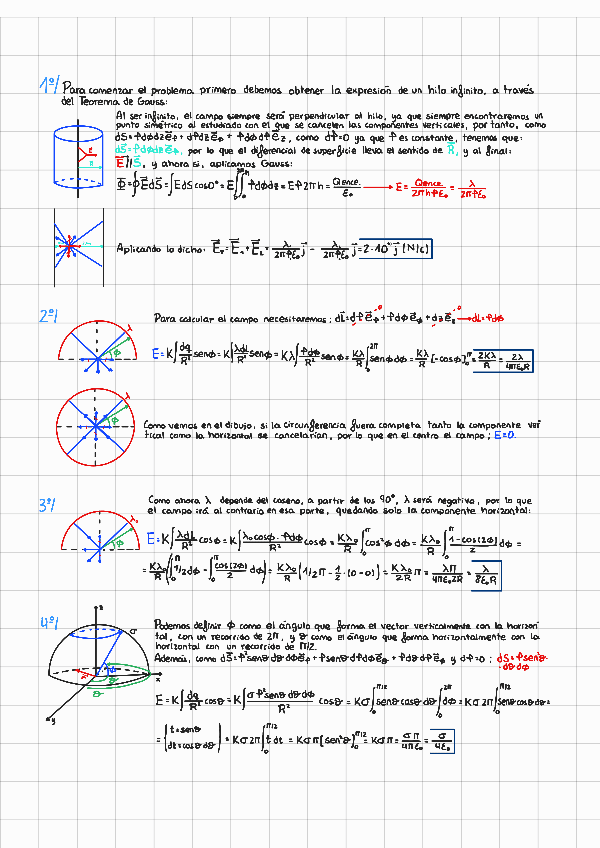 1º/ Para comenzar el problema primero debemos obtener la expresión de un hilo infinito, a través
del Teorema de Gauss:
Al ser infinito, el campo siempre será perpendicular al hilo, ya que siempre encontraremos un
punto simétrico al estudiado con el que se cancelen las componentes verticales, por tanto, como
dS = rdφdz e⃗r + drdz e⃗φ + rdφdr e⃗z, como dr=0 ya que r es constante, tenemos que:
dS = rdφdz e⃗r, por lo que el diferencial de superficie lleva el sentido de R⃗, y al final:
E⃗//S⃗, y ahora si, aplicamos Gauss:
Φ = ∮E⃗dS⃗ = ∫EdS cos0° = E∬rdφdz = Er2πh = Qence./ε₀ → E = Qence./2πhrε₀ = λ/2πrε₀
Aplicando lo dicho: E⃗T = E⃗1 + E⃗2 = λ/2πrε₀ j⃗ - λ/2πrε₀ j⃗ = 2·10 j⃗ (N/C)
2º/
Para calcular el campo necesitaremos: dL⃗ = dr e⃗r + rdφ e⃗φ + dz e⃗z → dL = rdφ
E = K∫dq/R² senφ = K∫λdL/R² senφ = Kλ∫rdφ/R² senφ = Kλ/R ∫senφdφ = Kλ/R [-cosφ] = 2Kλ/R = 2λ/4πε₀R
Como vemos en el dibujo, si la circunferencia fuera completa tanto la componente ver
tical como la horizontal se cancelarían, por lo que en el centro el campo; E=0.
3º/
Como ahora λ depende del coseno, a partir de los 90°, λ será negativa, por lo que
el campo irá al contrario en esa parte, quedando solo la componente horizontal:
E = K∫λdL/R² cosφ = K∫λ₀cosφ·rdφ/R² cosφ = Kλ₀/R ∫cos²φdφ = Kλ₀/R ∫1-cos(2φ)/2 dφ =
= Kλ₀/R (∫1/2dφ - ∫cos(2φ)/2 dφ) = Kλ₀/R (1/2π - 1/2·(0-0)) = Kλ₀/2R π = λπ/4πε₀2R = λ/8ε₀R
4º/
Podemos definir φ como el ángulo que forma el vector verticalmente con la horizon
tal, con un recorrido de 2π, y θ como el ángulo que forma horizontalmente con la
horizontal con un recorrido de π/2.
Además, como dS⃗ = r²senθdθdφ e⃗r + rsenθdrdφ e⃗θ + rdθdr e⃗φ y dr=0; dS = r²senθ·dθdφ
E = K∫dq/R² cosθ = K∫σr²senθdθdφ/R² cosθ = Kσ∫senθcosθdθ∫dφ = Kσ2π∫senθcosθdθ =
= {t=senθ dt=cosθdθ} = Kσ2π∫t dt = Kσπ[sen²θ] = Kσπ = σπ/4πε₀ = σ/4ε₀